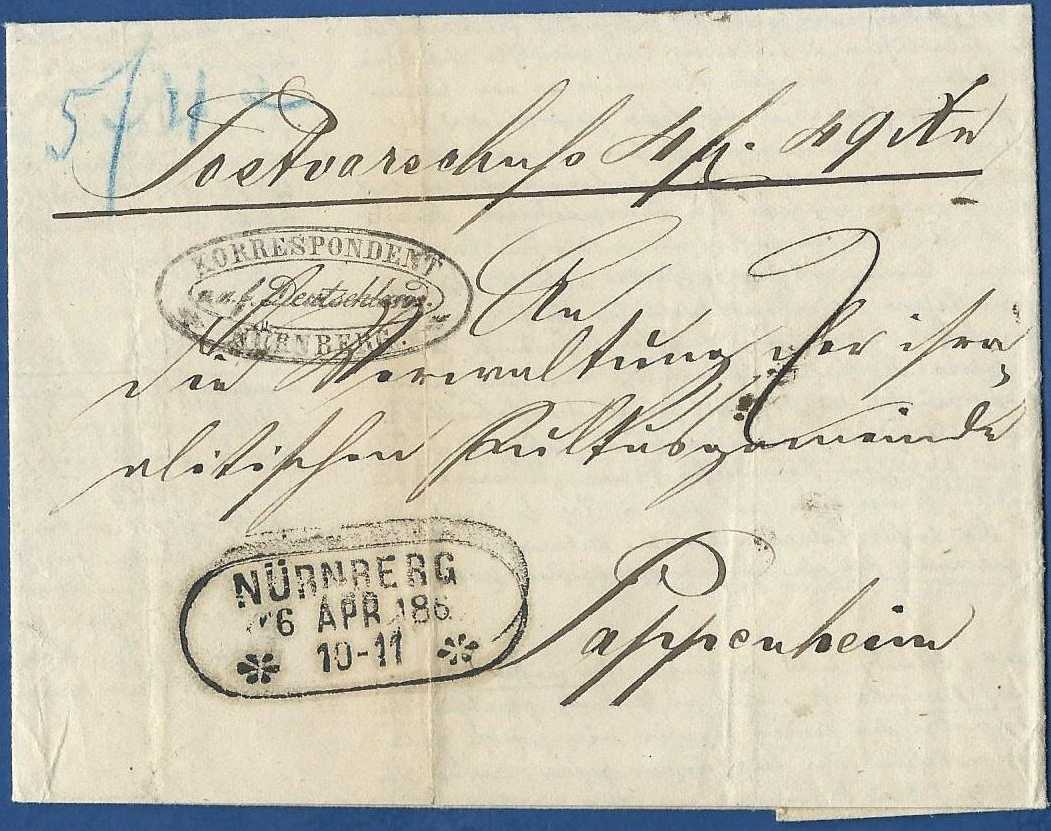 Postvorschuß 4 fl. 49
KORRESPONDENT
v. u. f. Deutschland
NÜRNBERG.
An
die Verwaltung der isra-
elitischen Kultusgemeinde
Pappenheim
NÜRNBERG
6 APR 186
10-11